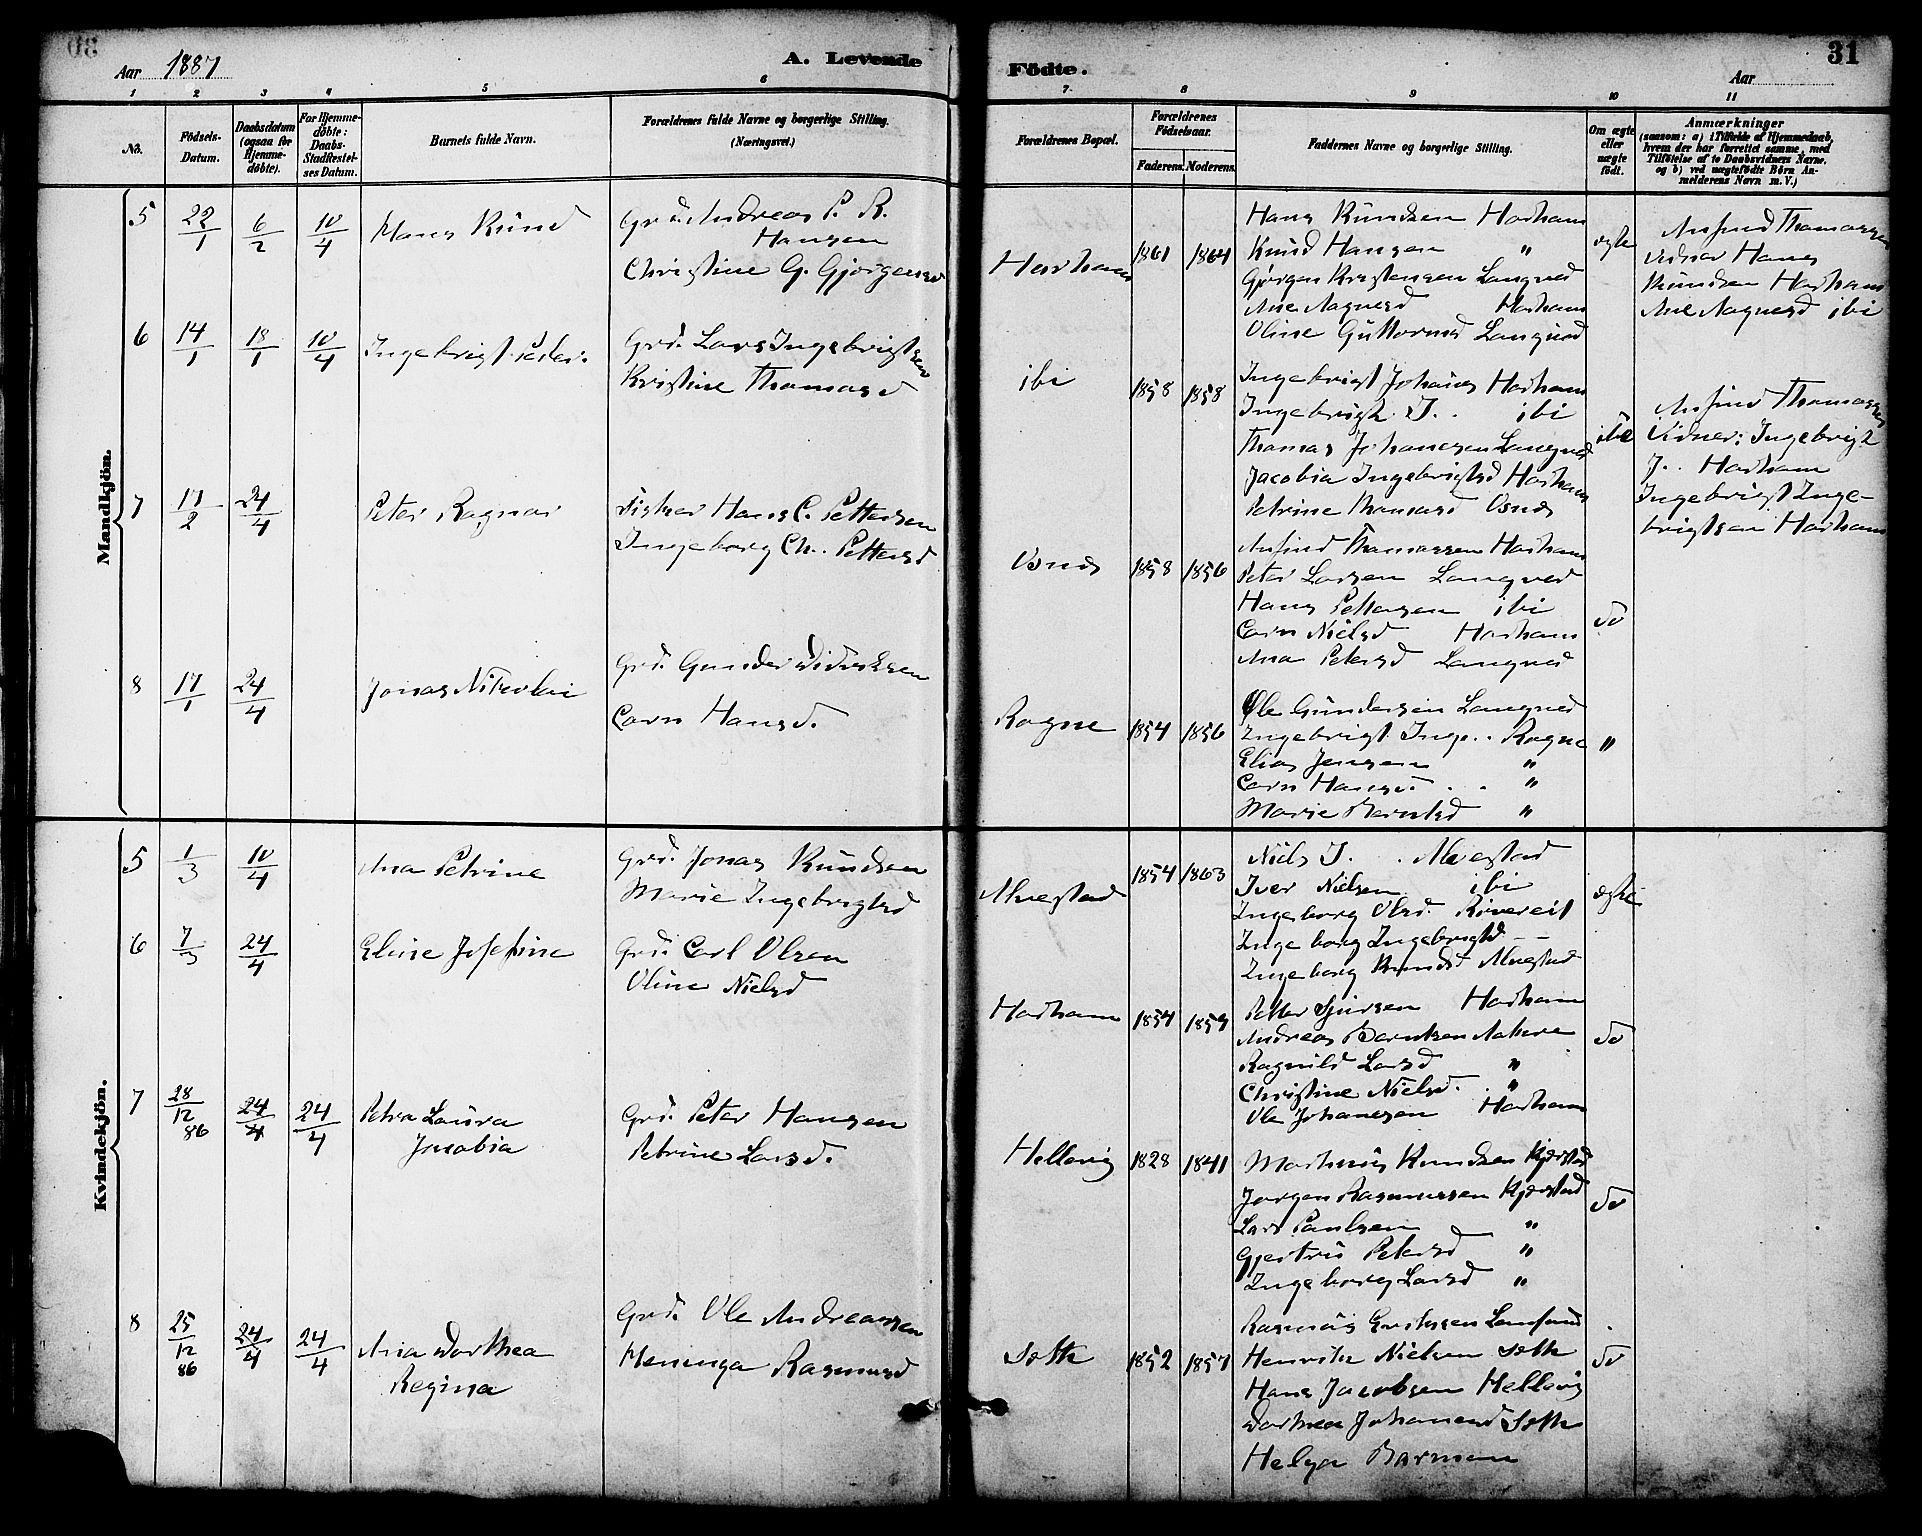 30
Aar 1887
A. Levende
Födte.
Aar
31
1 2 3 4 5 6 7 8 9 10 11
No.
Födsels-Datum.
Daabsdatum (ogsaa for Hjemmedöbte).
For Hjemmedöbte: Daabs-Stadfæstelses Datum.
Barnets fulde Navn.
Forældrenes fulde Navne og borgerlige Stilling.
(Næringsvei.)
Forældrenes Bopæl.
Forældrenes Födselsaar.
Faderens. Moderens.
Faddernes Navne og borgerlige Stilling.
Om ægte eller uægte födt.
Anmærkninger
(saasom: a) i Tilfælde af Hjemmedaab, hvem der har forrettet samme, med Tilföielse af to Daabsvidners Navne. og b) ved uægtefödte Börn Anmelderens Navn m. V.)
Mandkjön.
5 22/1 6/2 10/4 Hans Knud
Grd. Andreas P. R.
Hansen
Christine G. Gjørgensd
Harham 1861 1864
Hans Knudsen Harham
Knud Hansen "
Gjørgen Kristensen Langved
Ane Aagnesd Harham
Oline Guttormsd Langved
ægte
Anfind Thomassen
Vidner Hans
Knudsen Harham
Ane Aagnesd ibi
6 14/1 18/1 10/4 Ingebrigt Peder.
Grd. Lars Ingebrigtsen
Kristine Thomasd
ibi 1858 1858
Ingebrigt Johans Harham
Ingebrigt J. . ibi
Thomas Johanesen Langved
Jacobia Ingebrigtsd Harham
Petrine Thomasd Osnes
Anfind Thomassen
Vidner: Ingebrigt
J. . Harham
Ingebrigt Inge-
brigtsen Harham
7 17/2 24/4 Peter Ragnar
Fisker Hans C. Pettersen
Ingeborg Ch. Pettersd
Osnes 1858 1856
Anfind Thomassen Harham
Peter Larsen Langved
Hans Pettersen ibi
Carn Nielsd Harham
Ana Petersd Langved
do
8 17/1 24/4 Jonas Nikolai
Grd. Gunder Didriksen
Carn Hansd.
Rogne 1854 1856
Ole Gundersen Langved
Ingebrigt Inge.. Rogne
Elias Jensen "
Carn Hansd. . . "
Marie Berntsd "
"
Kvindekjön.
5 1/3 10/4 Ana Petrine
Grd. Jonas Knudsen
Marie Ingebrigtsd
Alvestad 1854 1863
Niels J. . Alvestad
Iver Nielsen ibi
Ingeborg Olsd.
Ingeborg Ingebrigtsd - -
Ingeborg Knudsd Alvestad
ægte
6 7/3 24/4 Eline Josefine
Grd. Carl Olsen
Oline Nielsd
Harham 1854 1859
Petter Sjursen Harham
Andreas Berntsen
Ragnild Larsd "
Christine Nielsd. "
Ole Johanesen Harham
do
7 28/12 86 24/4 24/4 Petra Laura
Jacobia
Grd. Peter Hansen
Petrine Larsd.
Hellevig 1828 1841
Martinus Knudsen Kjerstad
Jørgen Rasmussen Kjerstad
Lars Paulsen "
Gjertrud Petersd "
Ingeborg Larsd "
do
8 25/12 86 24/4 24/4 Ana Dorthea
Regina
Grd. Ole Andreassen
Rasmusd
Søth 1852 1857
Rasmus
Henrik Nielsen Søth
Hans Jacobsen Hellevig
Dorthea Johanesd Søth
Helga Barman
do